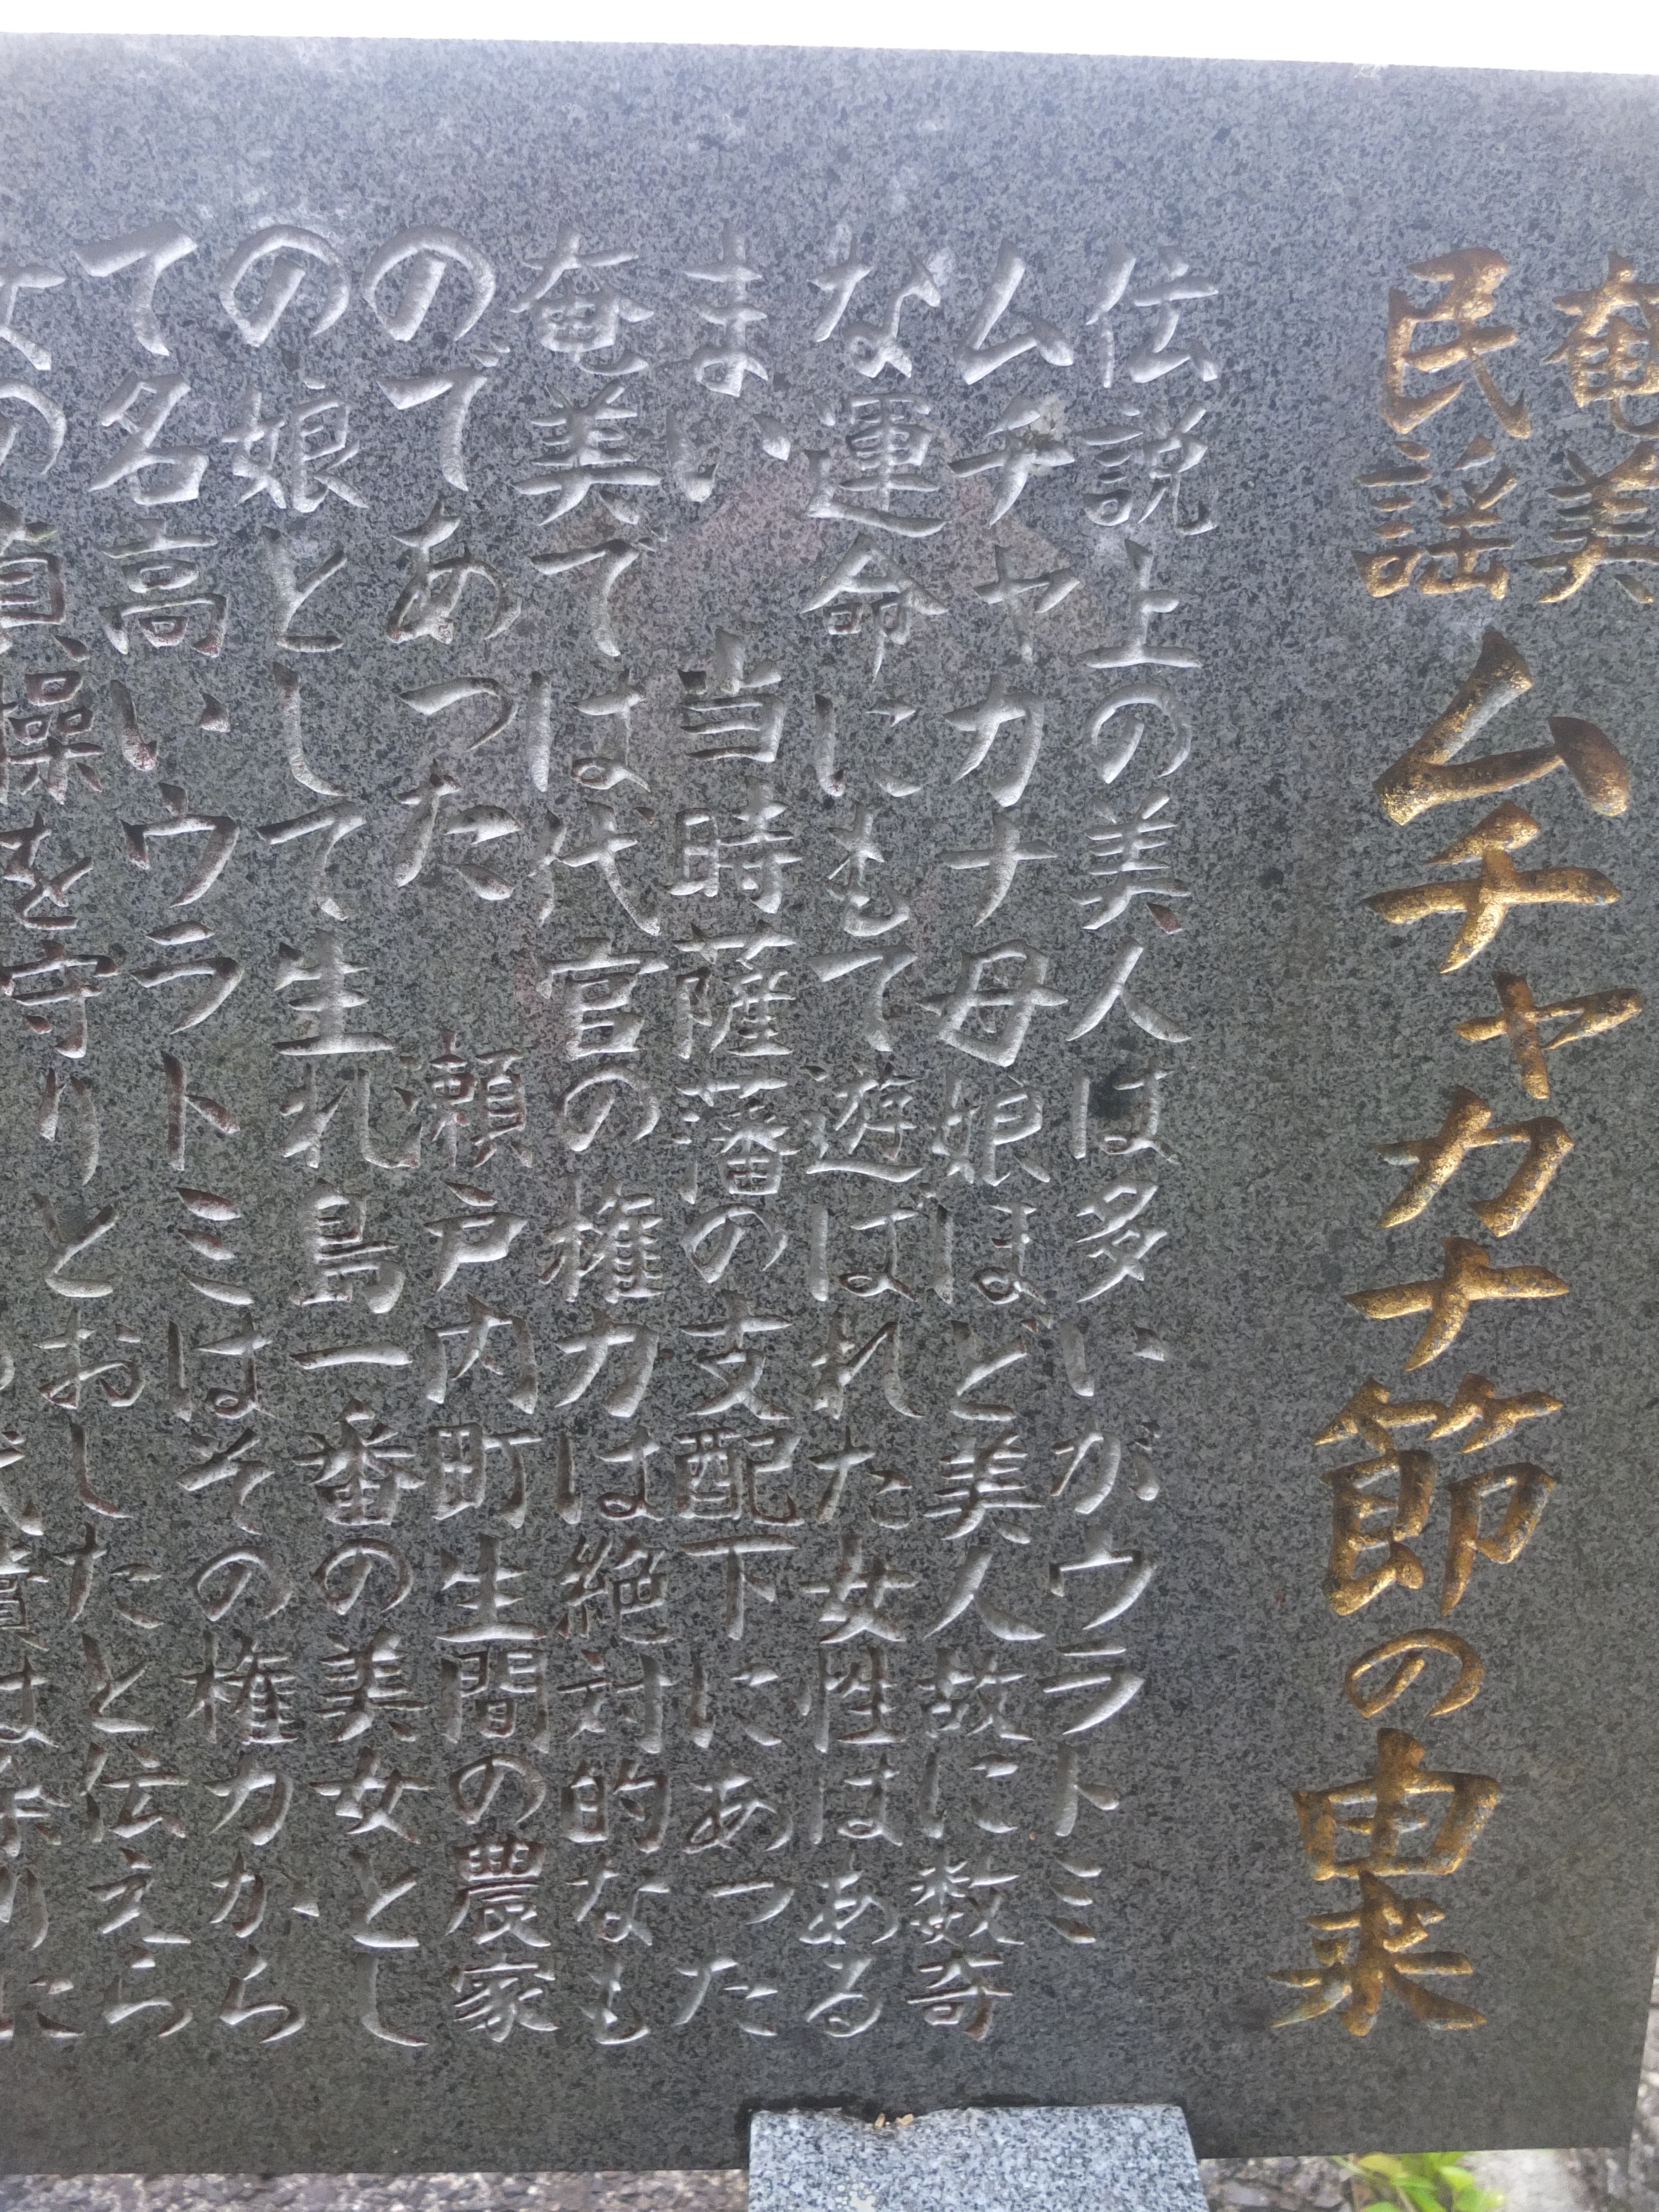 奄美
民謡 ムチャカナ節の由来
伝説上の美人は多いがウラトミ
ムチャカナ母娘ほど美人故に数奇
な運命にもて遊ばれた女性はある
まい 当時薩藩の支配下にあった
奄美では代官の権力は絶対的なも
のであった 瀬戸内町生間の農家
の娘として生れ島一番の美女とし
て名高いウラトミはその権力から
の貞操を守りとおしたと伝えら
償は余りに